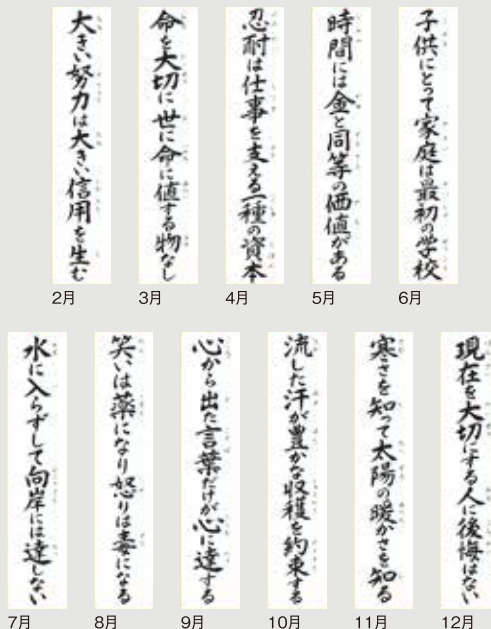 大きい努力は大きい信用を生む
2月
命を大切に 世に命に値する物なし
3月
忍耐は仕事を支える一種の資本
4月
時間には金と同等の価値がある
5月
子供にとって家庭は最初の学校
6月
水に入らずして向岸には達しない
7月
笑いは薬になり怒りは毒になる
8月
心から出た言葉だけが心に達する
9月
流した汗が豊かな収穫を約束する
10月
寒さを知って太陽の暖かさを知る
11月
現在を大切にする人に後悔はない
12月